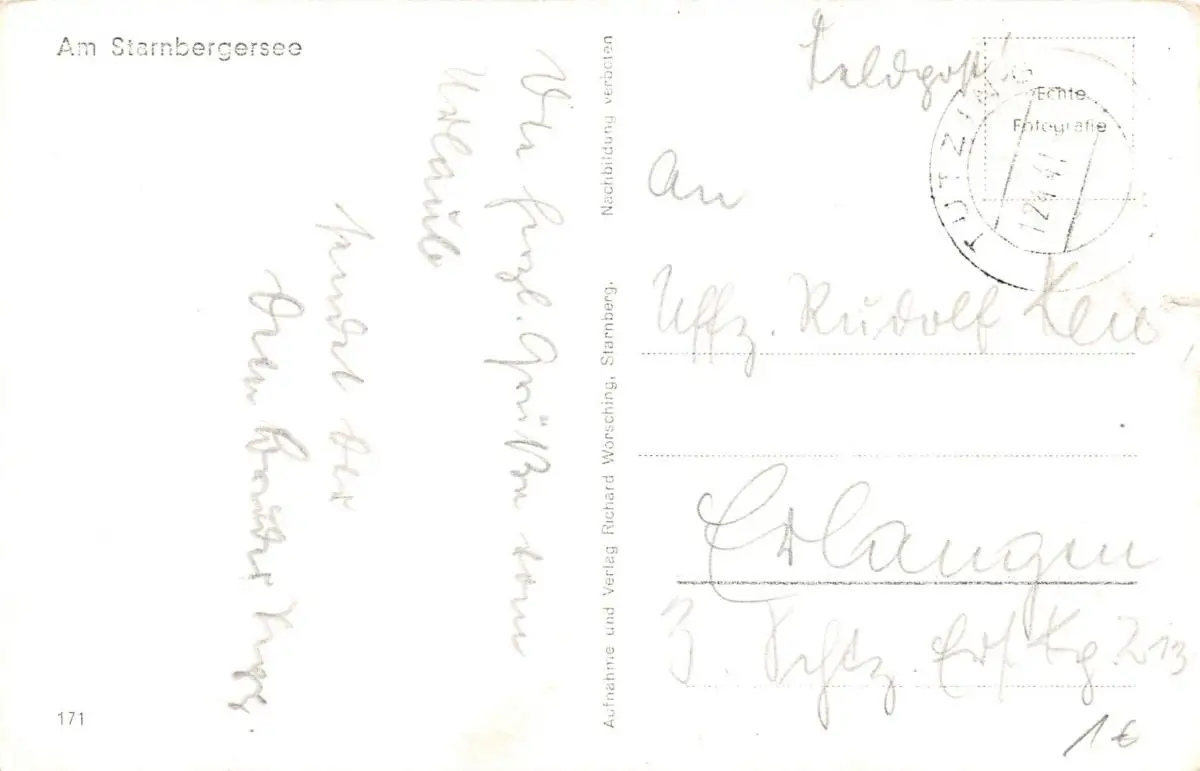 Am Starnbergersee
Viele herzl. Grüße vom
Urlaub
sendet Dir
Dein
171
Aufnahme und Verlag Richard Worsching, Starnberg. Nachbildung verboten
Feldpost!
Echte
Fotografie
TUTZI
12.4.41
An
Uffz. Rudolf
Erlangen
3. Schtz. Ers. Kp. 213
1 €